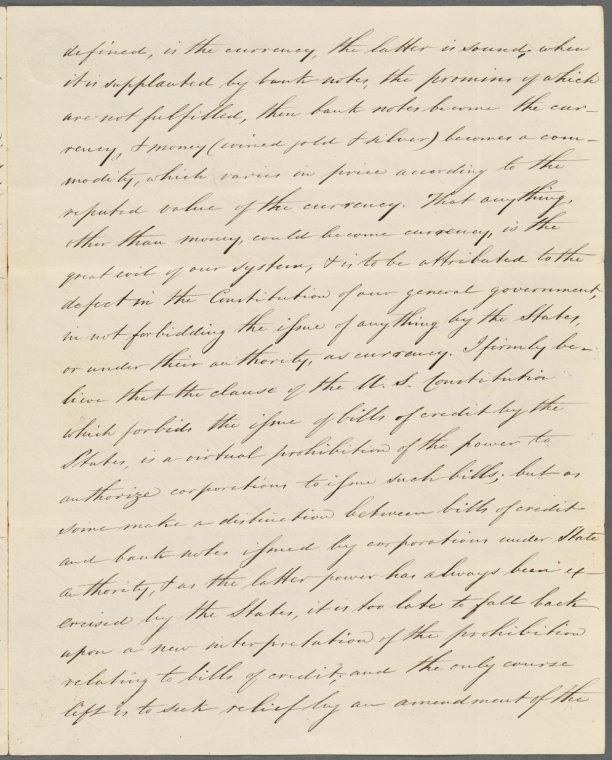 defined, is the currency, the latter is sound; when
it is supplanted by bank notes, the promises of which
are not fulfilled, then bank notes become the cur-
rency, & money (coined gold & silver) becomes a com-
modity, which varies in price according to the
reputed value of the currency. That anything,
other than money, could become currency, is the
great evil of our system, & is to be attributed to the
defect in the Constitution of our general government,
in not forbidding the issue of anything by the States,
or under their authority, as currency. I firmly be-
lieve that the clause of the U. S. Constitution
which forbids the issue of bills of credit by the
States, is a virtual prohibition of the power to
authorize corporations to issue such bills; but as
some make a distinction between bills of credit
and bank notes issued by corporations under State
authority, & as the latter power has always been ex-
ercised by the States, it is too late to fall back
upon a new interpretation of the prohibition
relating to bills of credit; and the only course
left is to seek relief by an amendment of the